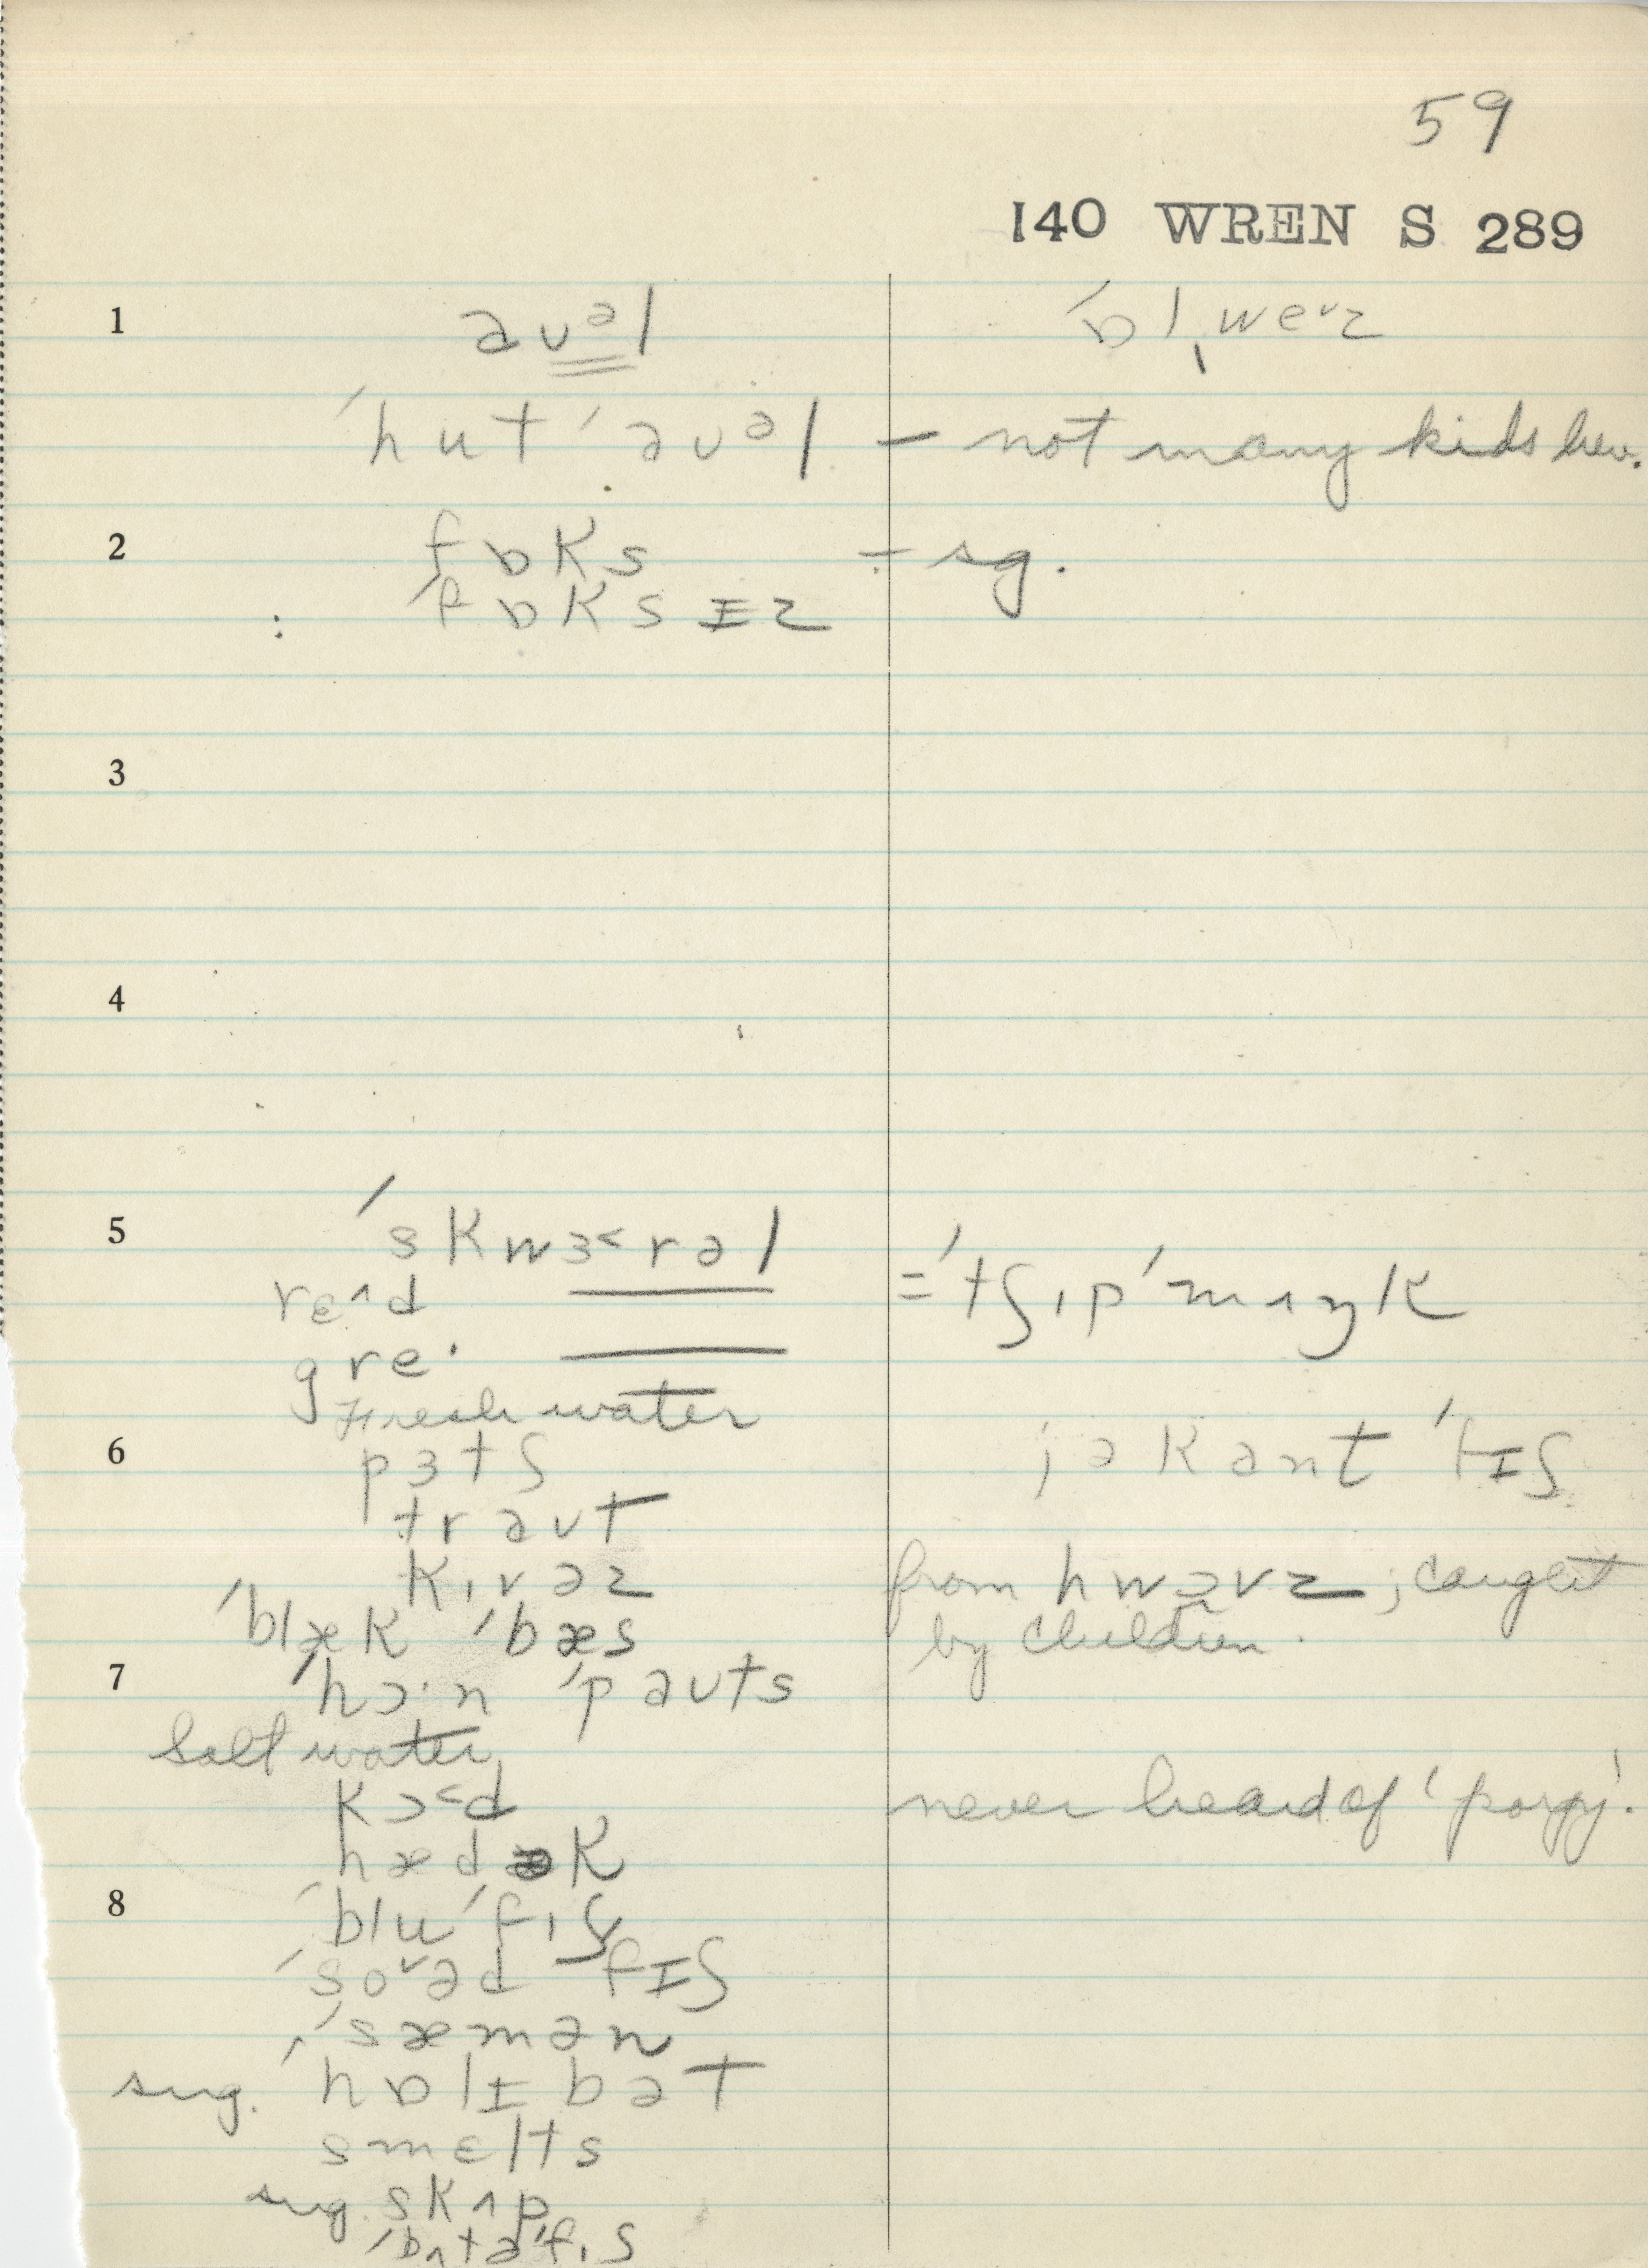 59
140 WREN S 289
1 aʊᵊl ˈbɪˌwe˅z
ˈhut ˈaʊᵊl — not many kids hw.
2 fɒks ÷ sg.
: ˈfɒksɪz
3
4
5 ˈskwɜ˂rəl = ˈtʃɪpˈmʌŋk
rɛ^d
gre·
Fresh water
6 pɜtʃ jə kant ˈfɪʃ
traʊt
kɪvəz from hwɔvz ; caught
ˈblæk ˈbæs by children.
7 ˈhɔ·n ˈpaʊts
Salt water
kɔ˂d never heard of 'porgy'.
hædək
8 ˈbluˈfɪʃ
ˈso˅əd fɪʃ
ˈsæmən
sug. ˈhɒlɪbət
smɛlts
sug. skʌp
ˈbʌtəˈfɪʃ